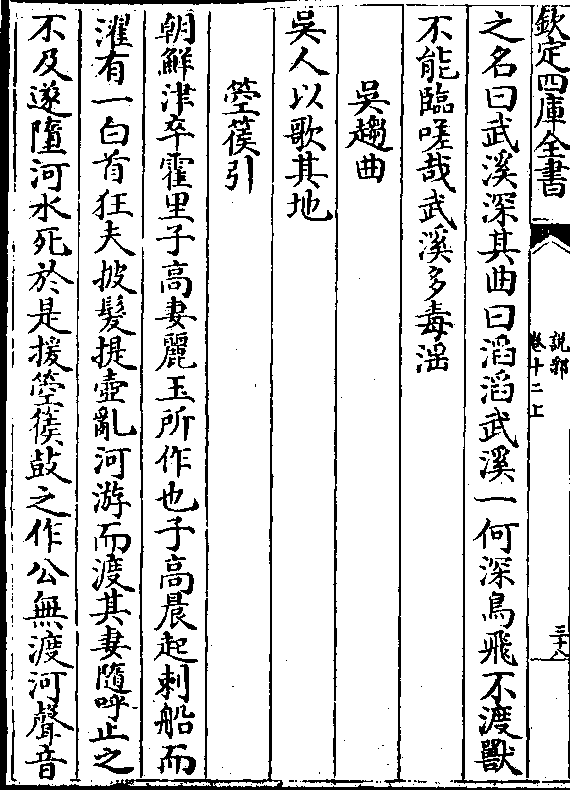 欽定四庫全書
說郛
卷十二上
三十八
之名曰武溪深其曲曰滔滔武溪一何深鳥飛不渡獸
不能臨嗟哉武溪多毒淫
吳趨曲
吳人以歌其地
箜篌引
朝鮮津卒霍里子高妻麗玉所作也子高晨起刺船而
濯有一白首狂夫披髮提壺亂河游而渡其妻隨呼止之
不及遂墮河水死於是援箜篌鼓之作公無渡河聲音